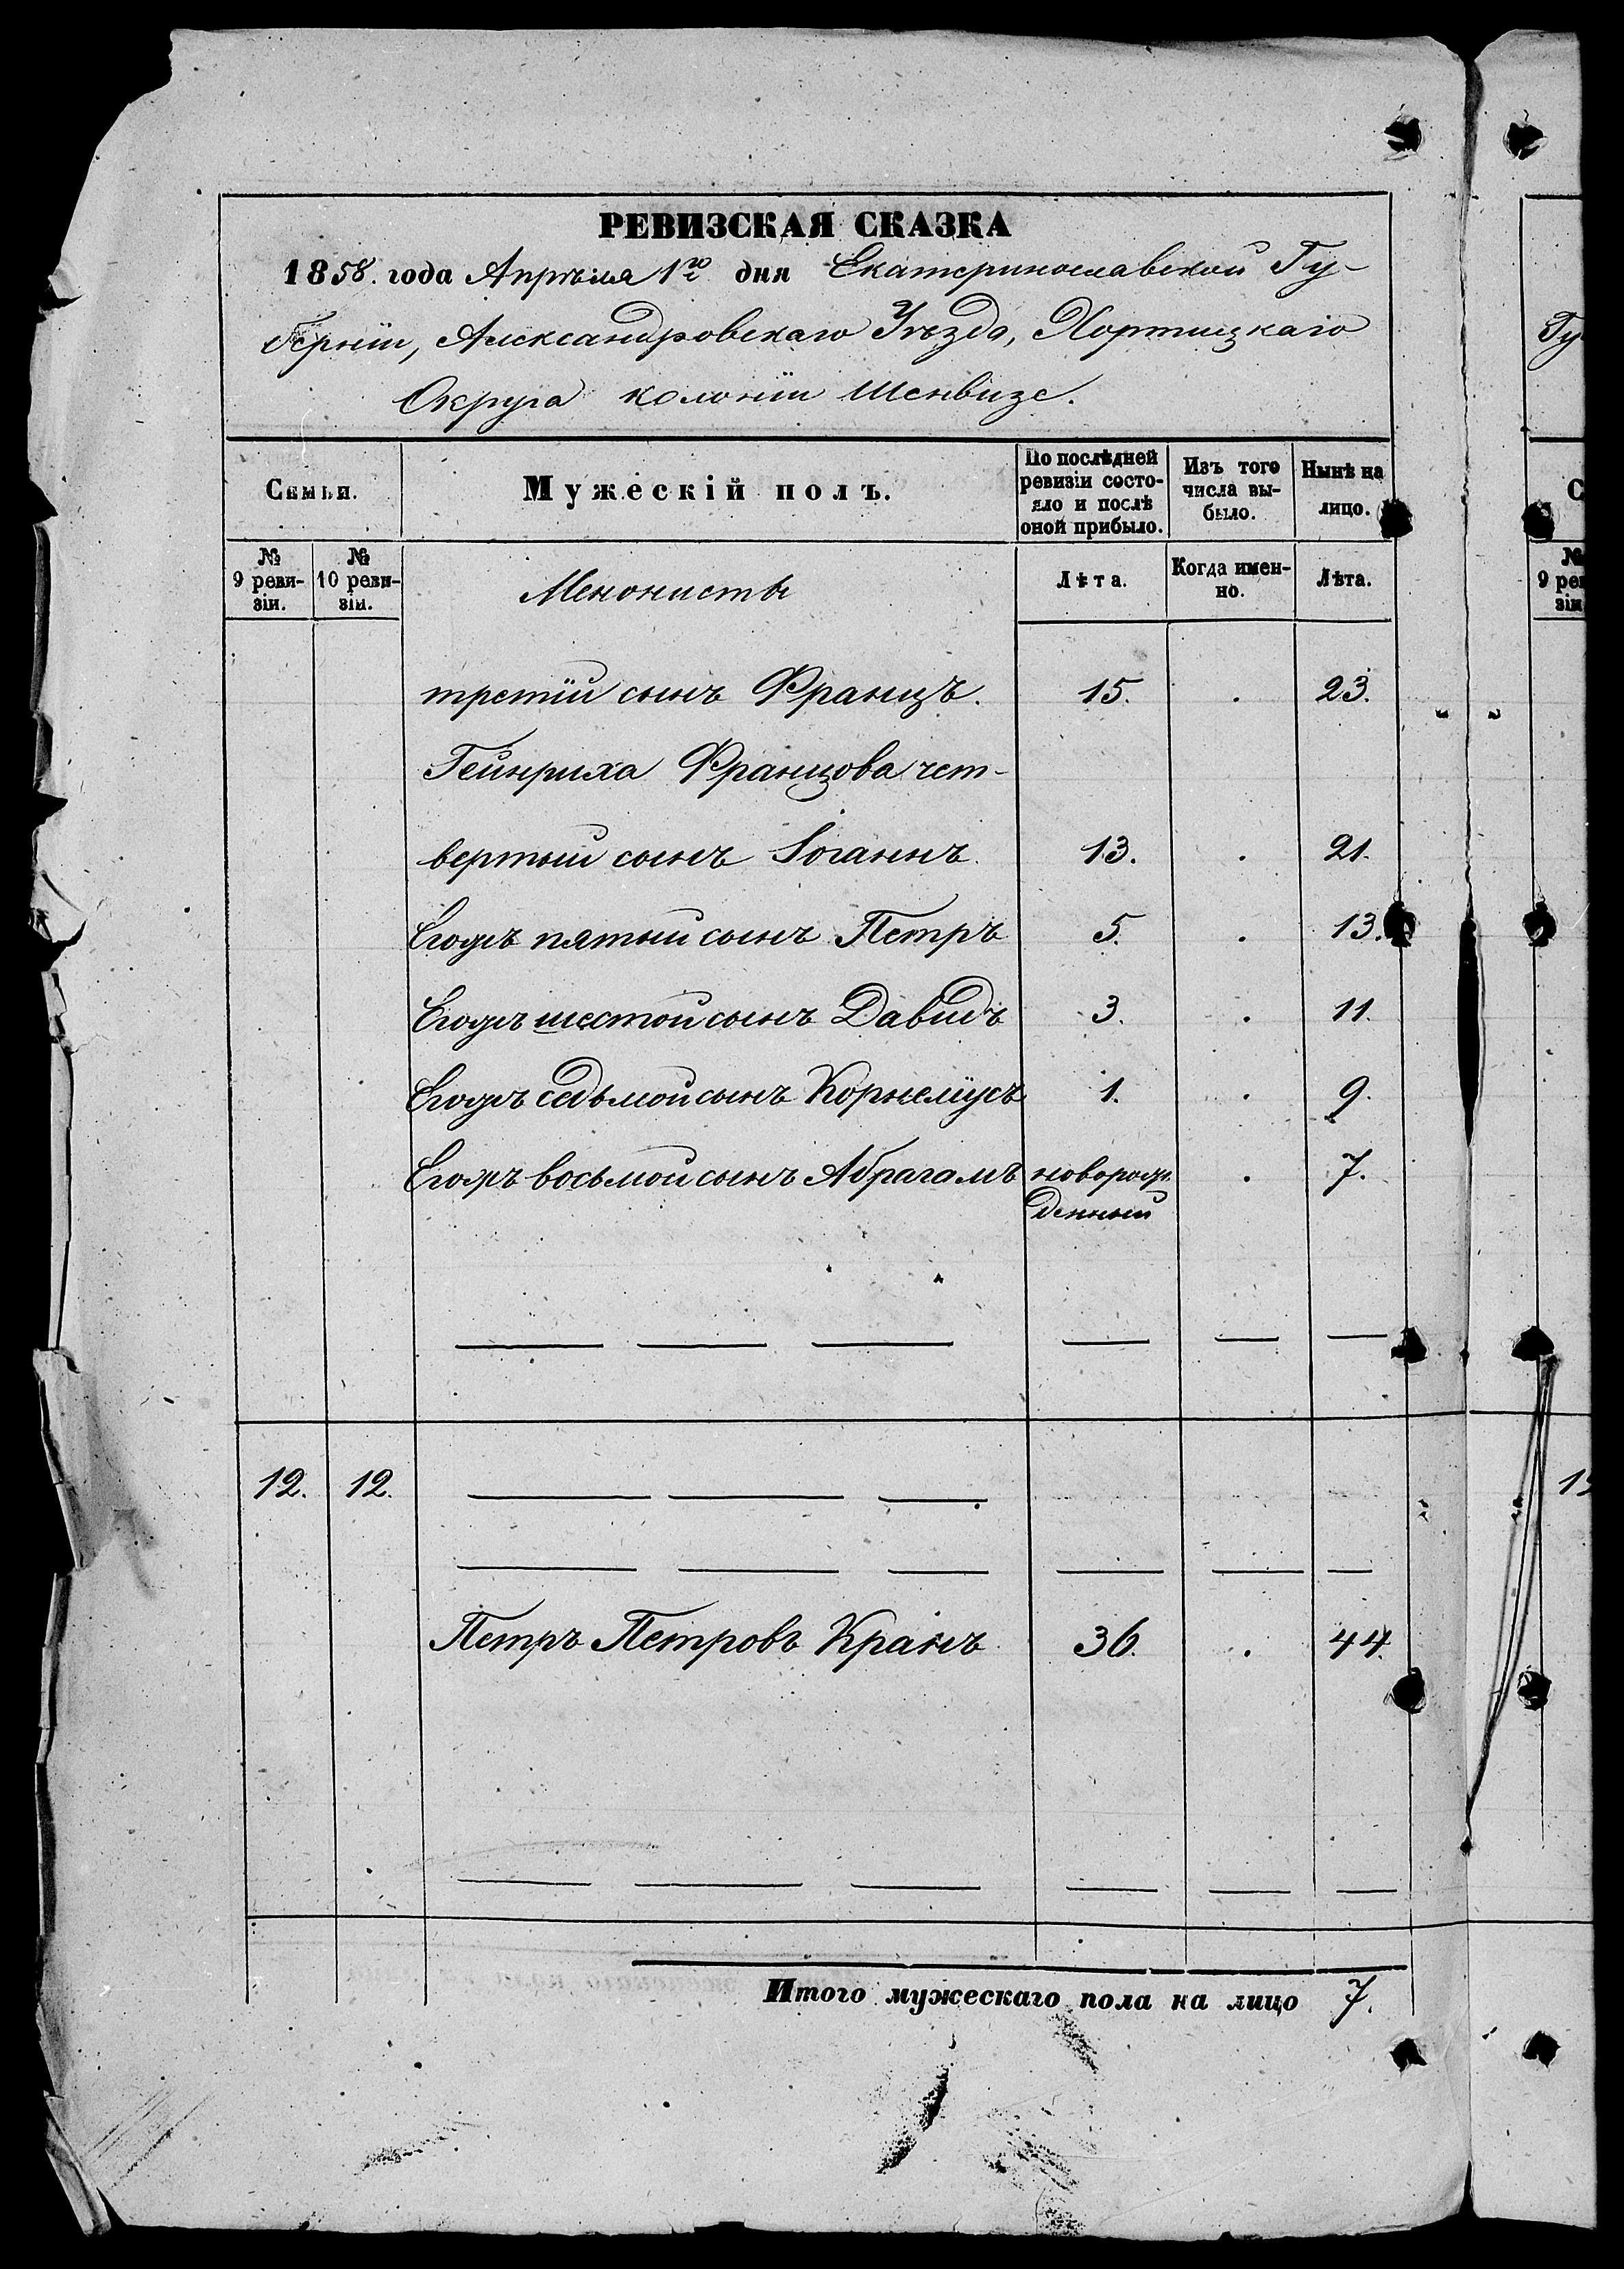 РЕВИЗСКАЯ СКАЗКА
1858. года Апрѣля 1го дня Екатеринославской Гу-
берніи, Александровскаго Уѣзда, Хортицкаго
Округа колоніи Шенвизе.
Семьи.
Мужескій полъ.
По послѣдней
ревизіи состо-
яло и послѣ
оной прибыло.
Изъ того
числа вы-
было.
Нынѣ на
лицо.
№
9 реви-
зіи.
№
10 реви-
зіи.
Менонисты
Лѣта.
Когда имен-
но.
Лѣта.
третій сынъ Францъ. 15. . 23.
Гейнриха Францова чет-
вертый сынъ Іоганнъ. 13. . 21.
Егожъ пятый сынъ Петръ 5. . 13.
Егожъ шестой сынъ Давидъ 3. . 11.
Егожъ седьмой сынъ Корнеліусъ 1. . 9.
Егожъ восьмой сынъ Абрагамъ новорож- . 7.
денный
12. 12.
Петръ Петровъ Кранъ 36. . 44.
Итого мужескаго пола на лицо 7.
Гу
С
№
9 рев
зіи